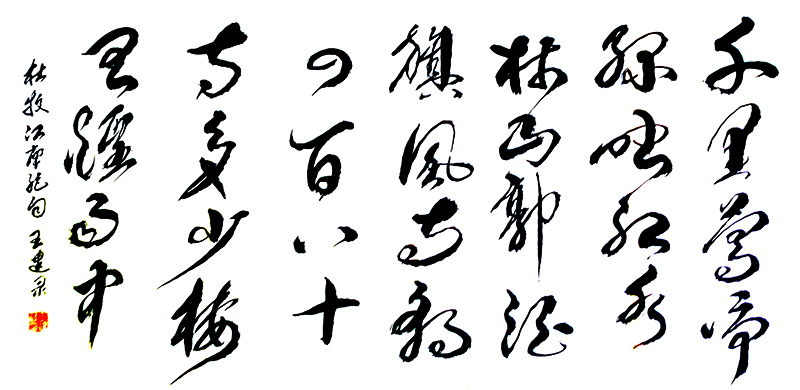 千里莺啼
绿映红水
村山郭酒
旗風南朝
四百八十
寺多少楼
臺烟雨中
杜牧江南绝句 王建泉